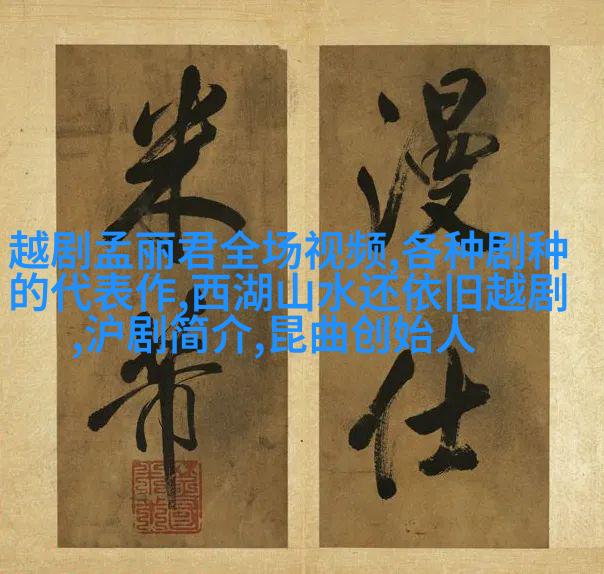 漫仕
米芾
越剧孟丽君全场视频,各种剧种
的代表作,西湖山水还依旧越剧
,沪剧简介,昆曲创始人